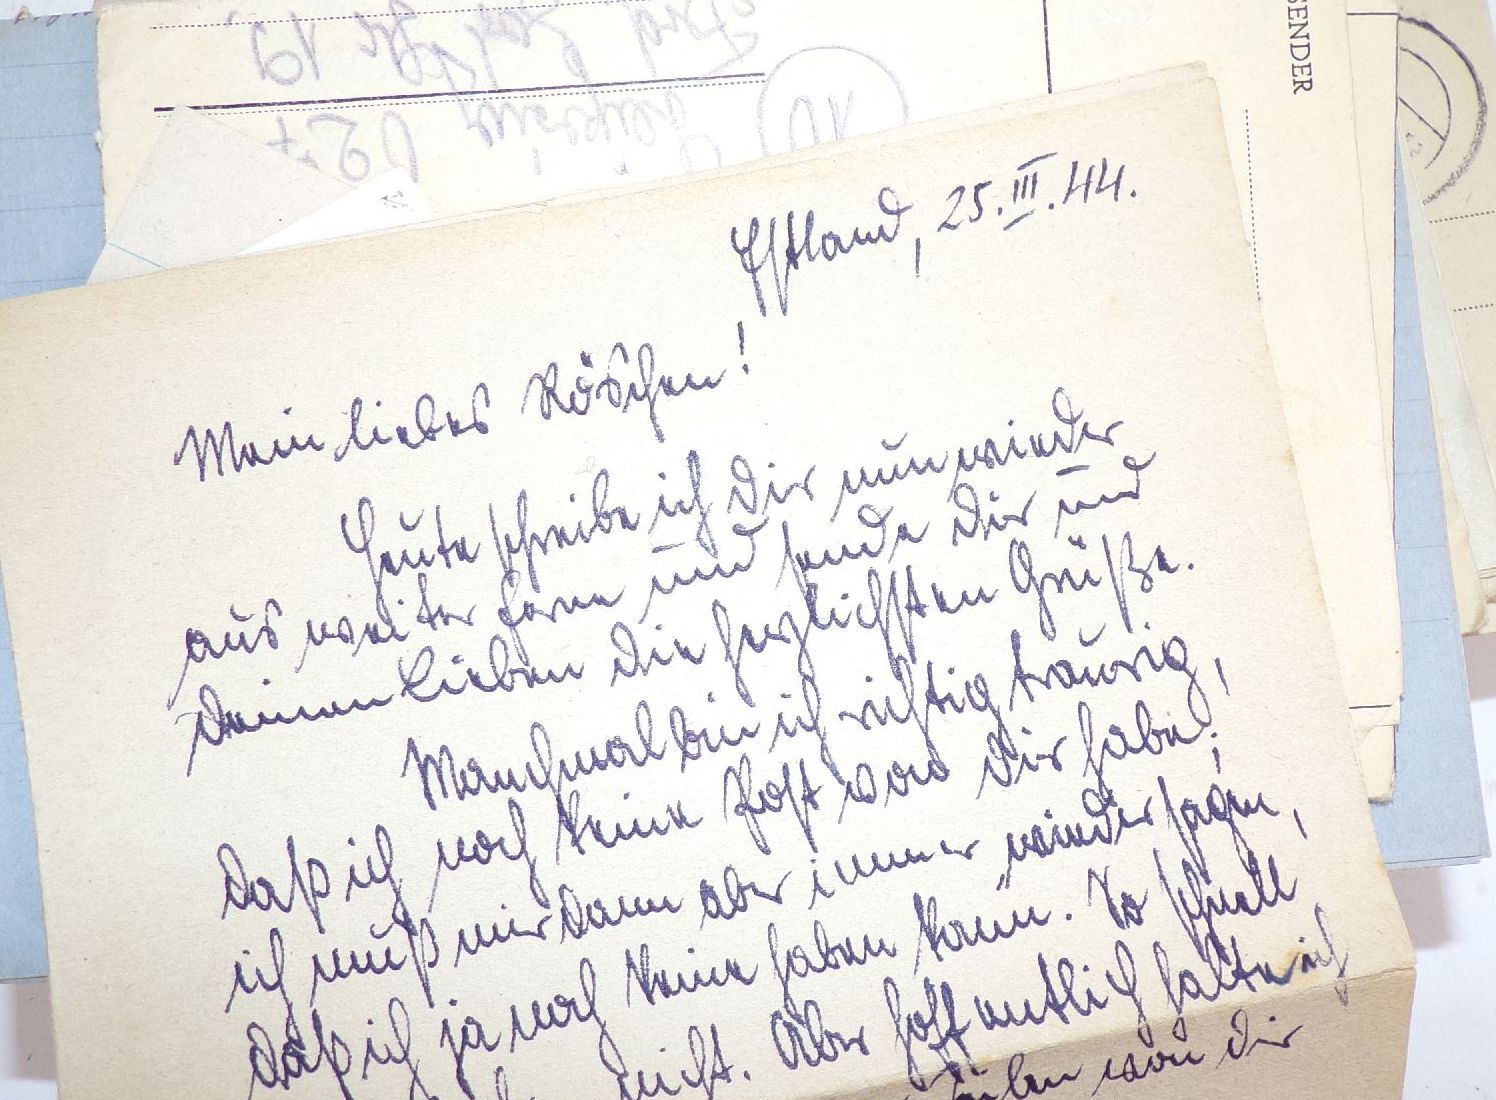 SENDER
Estland, 25.III.44.
Mein liebes Röschen!
Heute schreibe ich Dir nun wieder
aus weiter Ferne und sende Dir und
Deinen Lieben die herzlichsten Grüße.
Manchmal bin ich richtig traurig,
daß ich noch keine Post von Dir habe;
ich muß mir dann aber immer wieder sagen,
daß ich ja noch keine haben kann. So schnell
nicht. Aber hoffentlich halte ich
von Dir